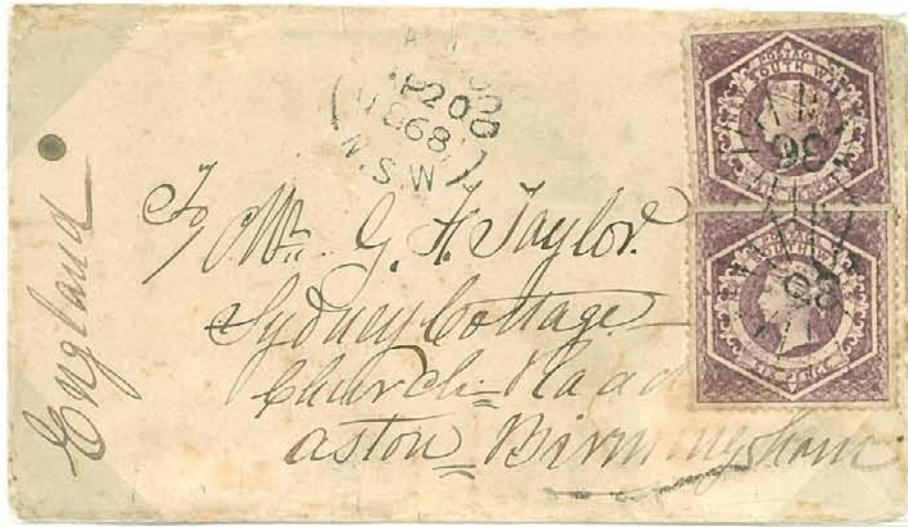 AP 20
1868
N.S.W
To Mr. G. F. Taylor.
Sydney Cottage
Church Road
Aston Birmingham
England
POSTAGE
NEW SOUTH WALES
SIX PENCE
36
POSTAGE
NEW SOUTH WALES
SIX PENCE